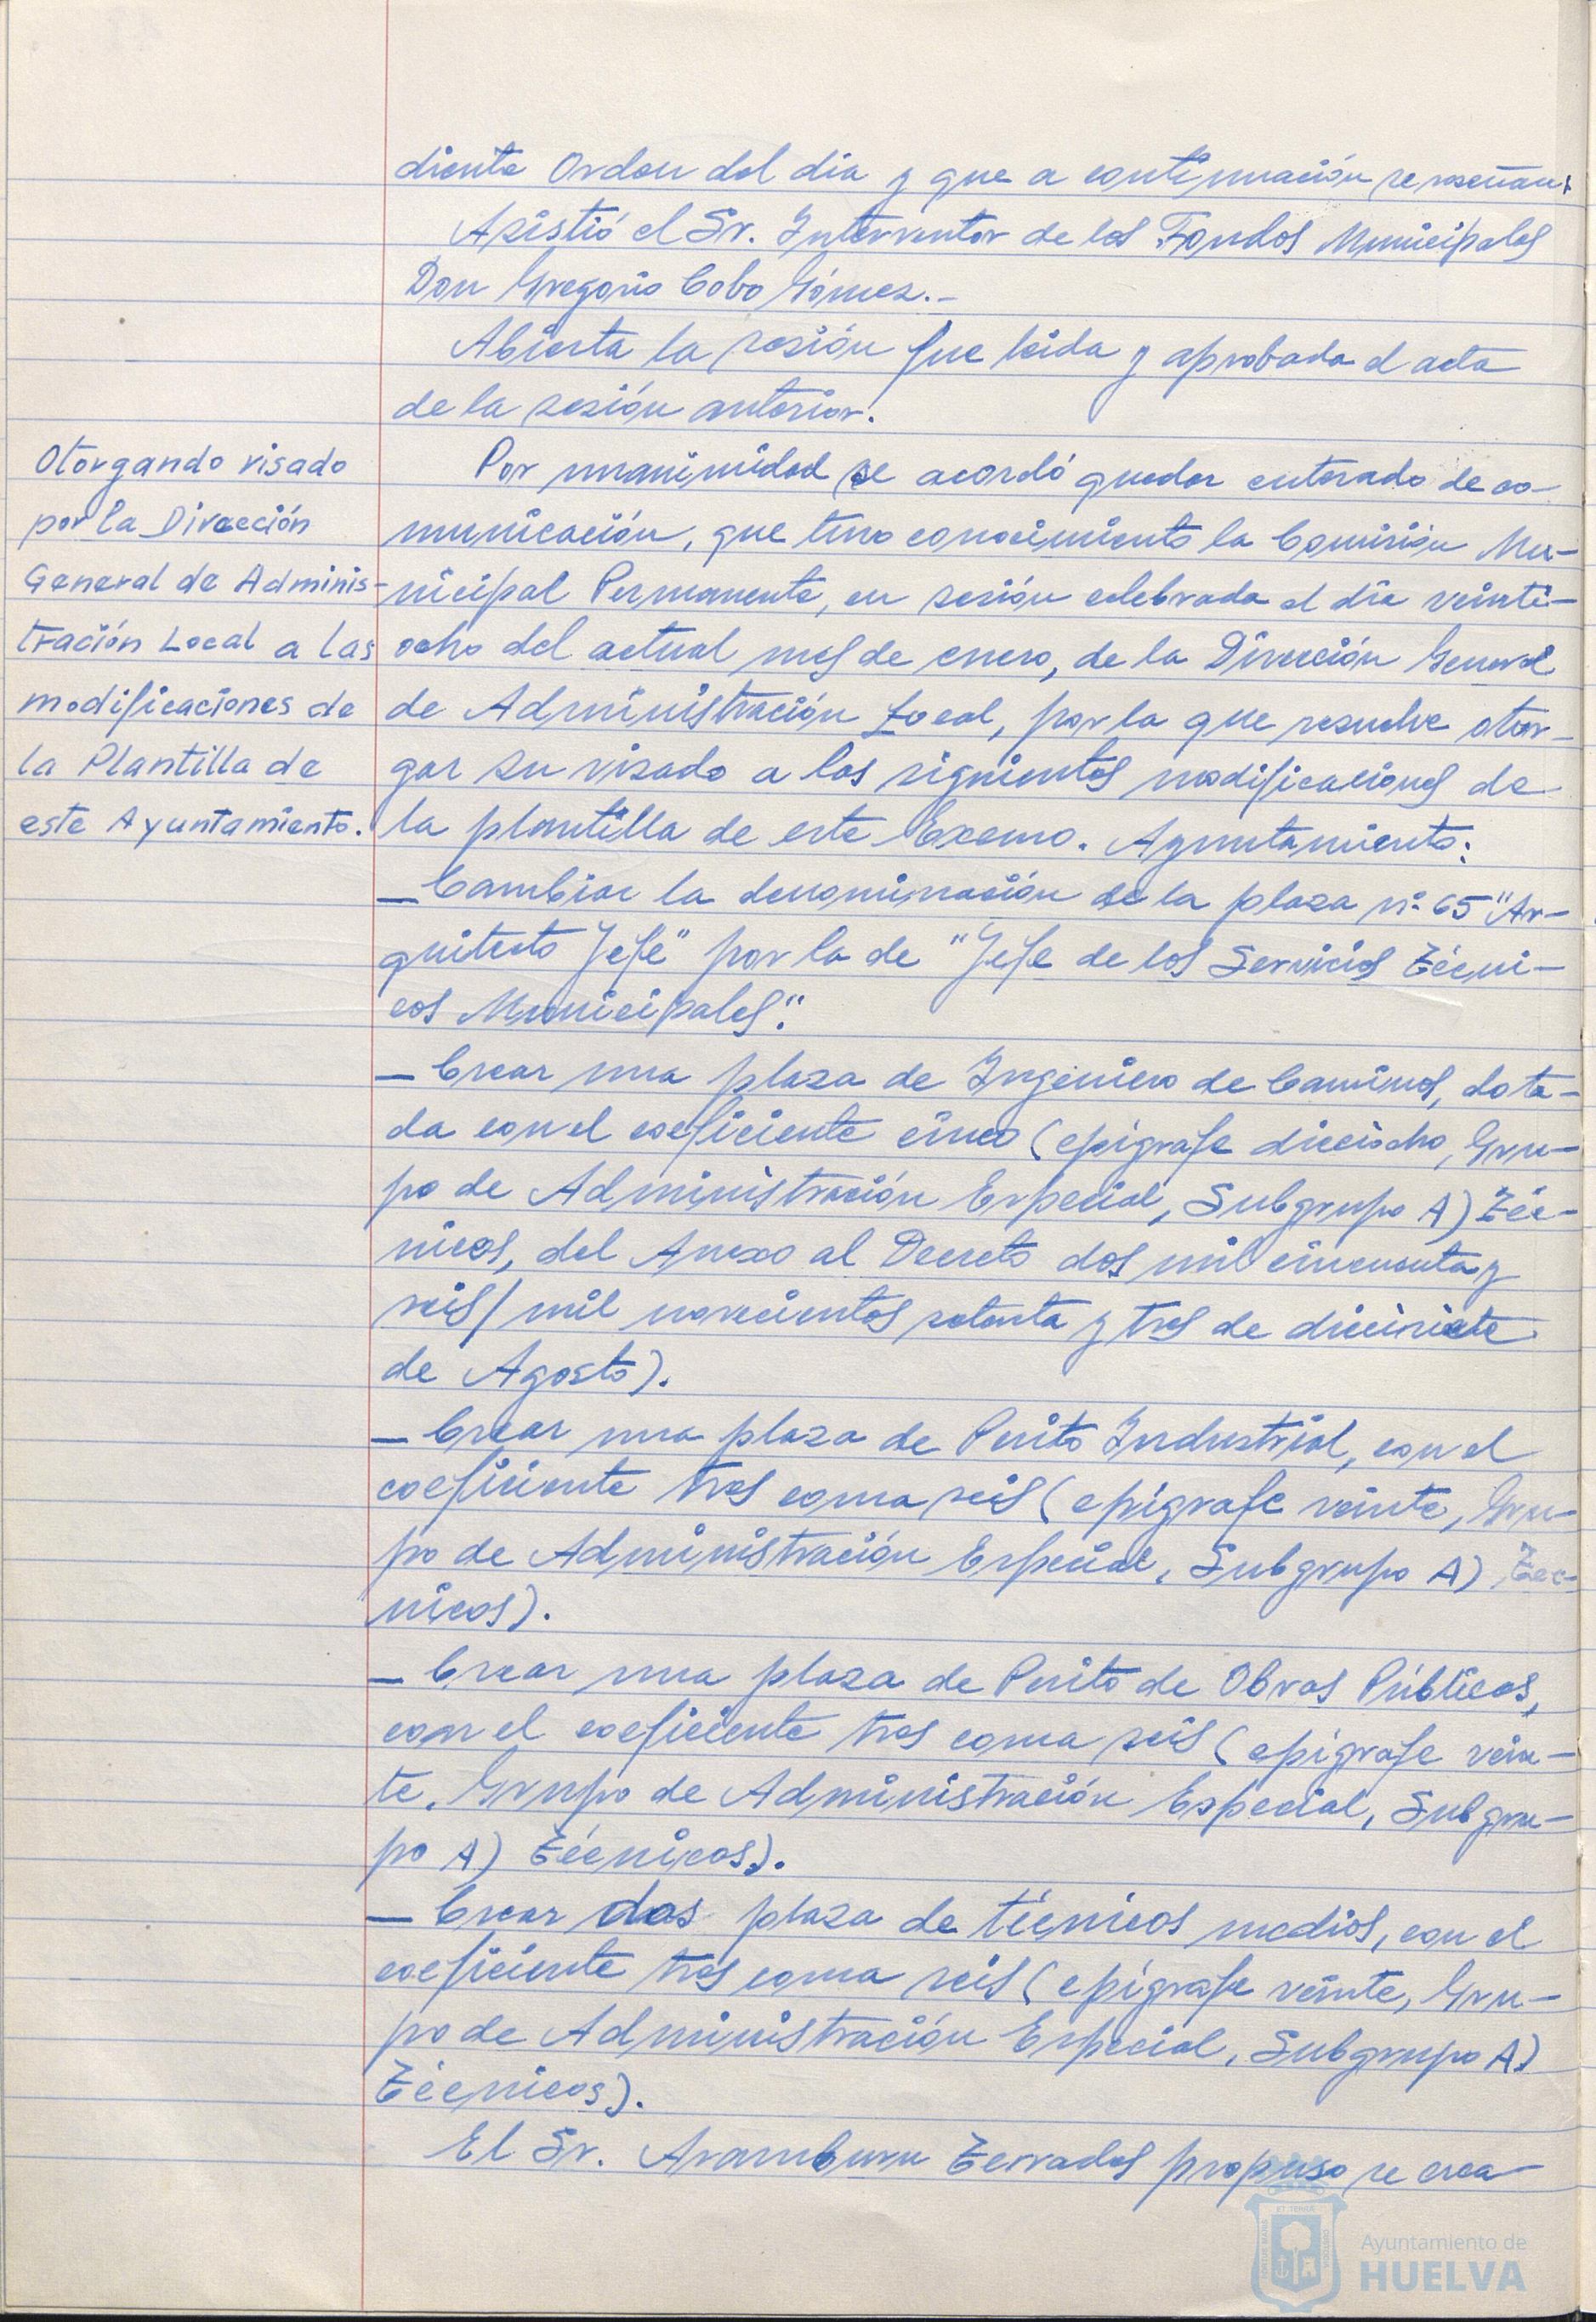 diente Orden del dia y que a continuación se reseñan:
Asistió el Sr. Interventor de los Fondos Municipales
Don Gregorio Cobo Gómez.-
Abierta la sesión fue leida y aprobada el acta
de la sesión anterior.
Otorgando visado
por la Dirección
General de Adminis-
tración Local a las
modificaciones de
la Plantilla de
este Ayuntamiento.
Por unanimidad se acordó quedar enterado de co-
municación, que tuvo conocimiento la Comisión Mu-
nicipal Permanente, en sesión celebrada el día veinti-
ocho del actual mes de enero, de la Dirección General
de Administración Local, por la que resuelve otor-
gar su visado a las siguientes modificaciones de
la plantilla de este Excmo. Ayuntamiento:
- Cambiar la denominación de la plaza nº 65 "Ar-
quitecto Jefe" por la de "Jefe de los Servicios Técni-
cos Municipales".
- Crear una plaza de Ingeniero de Caminos, dota-
da con el coeficiente cinco (epígrafe dieciocho, Gru-
po de Administración Especial, Subgrupo A) Téc-
nicos, del Anexo al Decreto dos mil cincuenta y
seis/mil novecientos setenta y tres de diecisiete
de Agosto).
- Crear una plaza de Perito Industrial, con el
coeficiente tres coma seis (epígrafe veinte, Gru-
po de Administración Especial, Subgrupo A) Téc-
nicos).
- Crear una plaza de Perito de Obras Públicas,
con el coeficiente tres coma seis (epígrafe vein-
te, Grupo de Administración Especial, Subgru-
po A) Técnicos).
- Crear dos plaza de técnicos medios, con el
coeficiente tres coma seis (epígrafe veinte, Gru-
po de Administración Especial, Subgrupo A)
Técnicos).
El Sr. Aramburu Terrados propuso se crea-
Ayuntamiento de
HUELVA